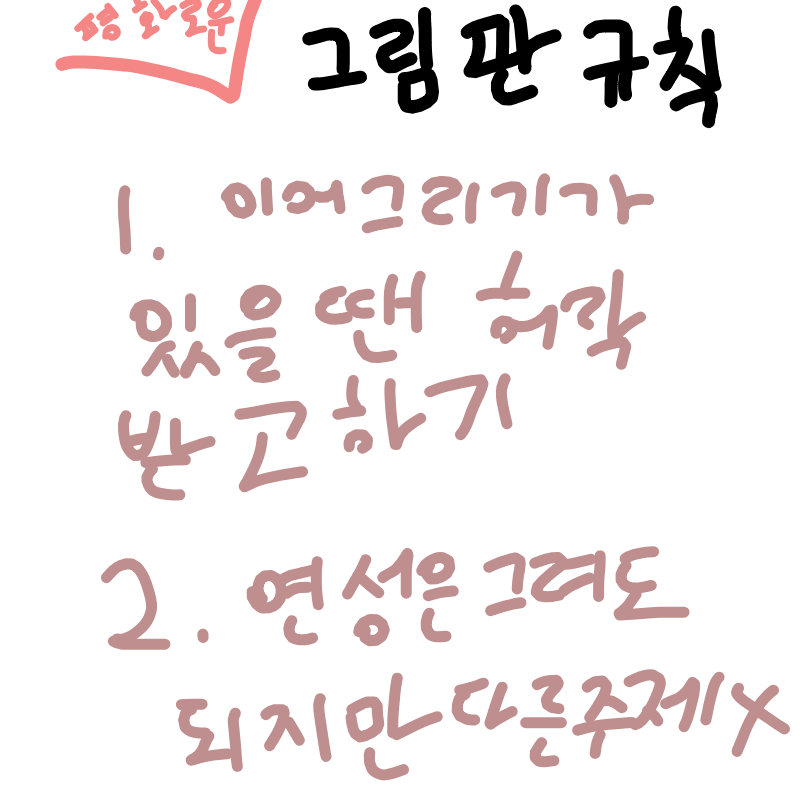 평화로운
그림판 규칙
1. 이어그리기가
있을 땐 허락
받고하기
2. 연성은 그려도
되지만 다른주제X